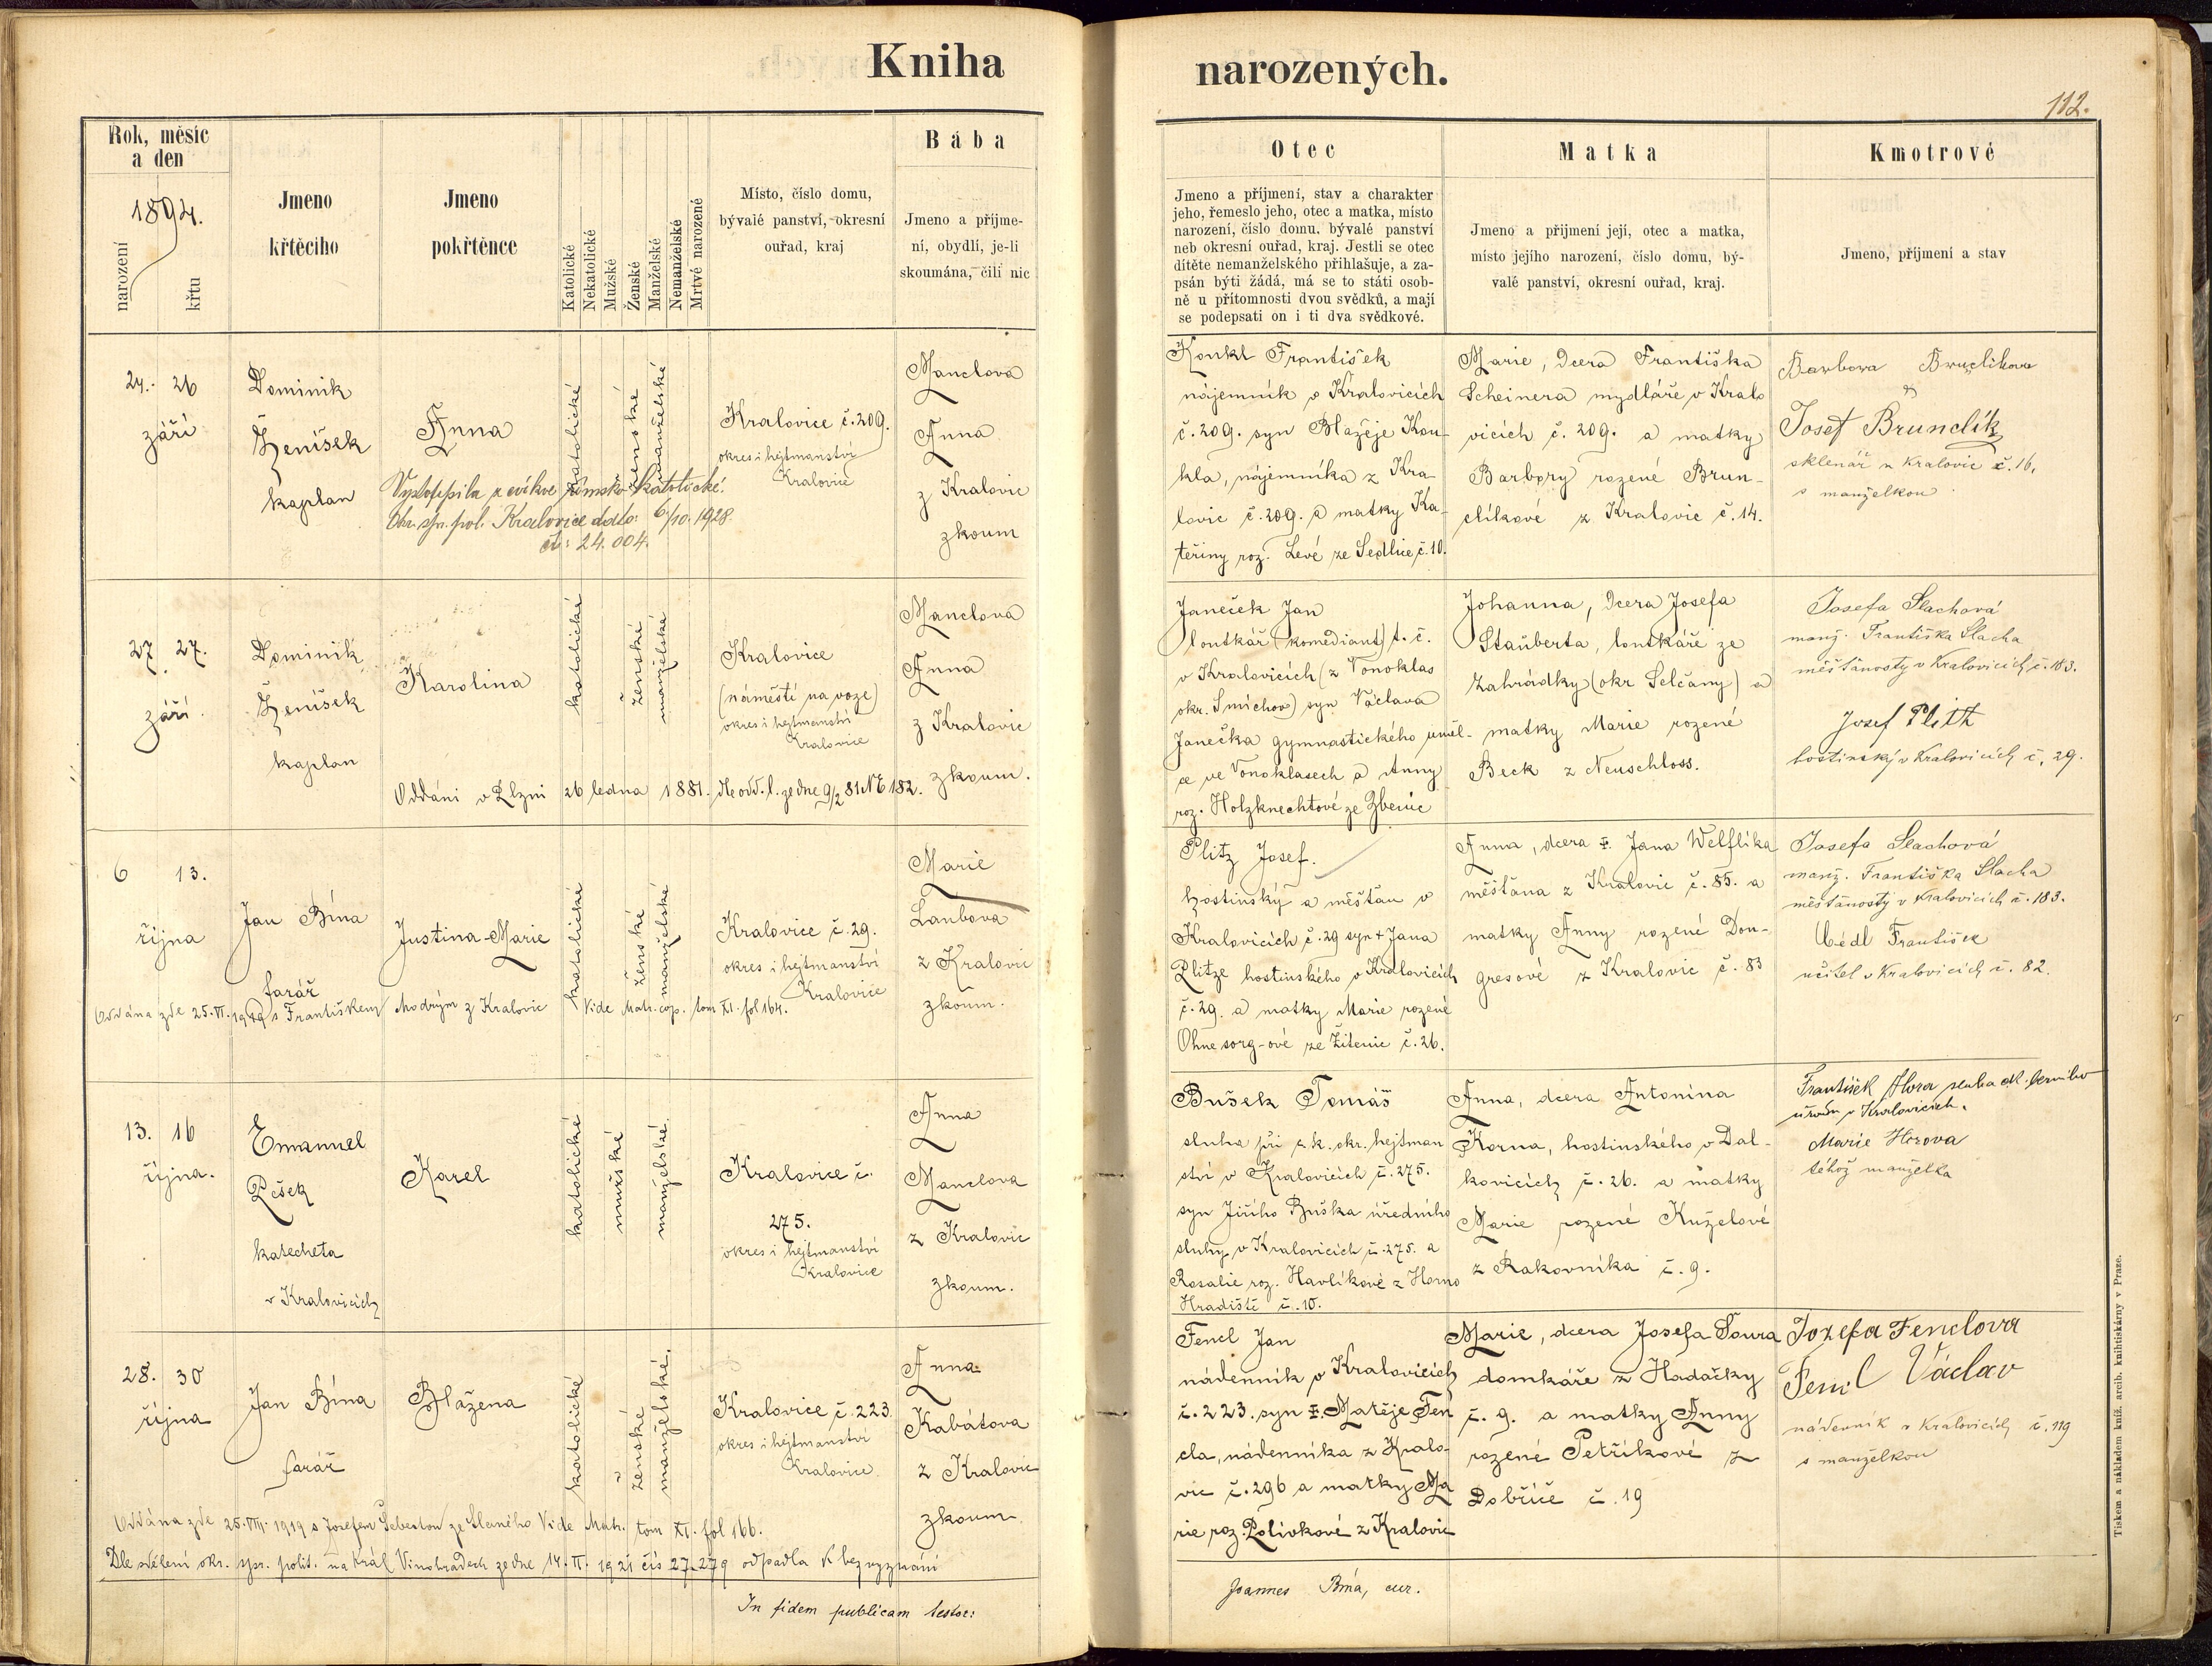 Kniha narozených.
112.
Rok, měsíc
a den
1894.
narození
křtu
Jmeno
křtěcího
Jmeno
pokřtěnce
Katolické
Nekatolické
Mužské
Ženské
Manželské
Nemanželské
Mrtvé narozené
Místo, číslo domu,
bývalé panství, okresní
ouřad, kraj
Bába
Jmeno a příjme-
ní, obydlí, je-li
skoumána, čili nic
Otec
Jmeno a příjmení, stav a charakter
jeho, řemeslo jeho, otec a matka, místo
narození, číslo domu, bývalé panství
neb okresní ouřad, kraj. Jestli se otec
dítěte nemanželského přihlašuje, a za-
psán býti žádá, má se to státi osob-
ně u přítomnosti dvou svědků, a mají
se podepsati on i ti dva svědkové.
Matka
Jmeno a přijmení její, otec a matka,
místo jejího narození, číslo domu, bý-
valé panství, okresní ouřad, kraj.
Kmotrové
Jmeno, příjmení a stav
24. 26
září
Dominik
Ženíšek
kaplan
Anna
katolické
ženské
manželské
Kralovice č. 209.
okres i hejtmanství
Kralovice
Manclova
Anna
z Kralovic
zkoum
Vystoupila z církve římsko-katolické.
Okr. spr. pol. Kralovice ddto: 6/10. 1928.
čj.: 24.004.
Konkl František
nájemník v Kralovicích
č. 209. syn Blažeje Kon-
kla, nájemníka z Kra-
lovic č. 209. a matky Ka-
teřiny roz. Levé ze Sedlice č. 10.
Marie, dcera Františka
Scheinera mydláře v Kralo
vicích č. 209. a matky
Barbory rozené Brun-
clíkové z Kralovic č. 14.
Barbora Brunclíkova
Josef Brunclík
sklenář z Kralovic č. 16.
s manželkou
27. 27.
září.
Dominik
Ženíšek
kaplan
Karolina
katolické
ženské
manželské
Kralovice
(náměstí na voze)
okres i hejtmanství
Kralovice
Manclova
Anna
z Kralovic
zkoum.
Oddáni v Plzni 26 ledna 1881. dle odd. l. ze dne 9/2 81 N E 182.
Janeček Jan
loutkář (komediant) t. č.
v Kralovicích (z Vonoklas
okr. Smíchov) syn Václava
Janečka gymnastického uměl-
ce ve Vonoklasech a Anny
roz. Holzknechtové ze Zbenic
Johanna, dcera Josefa
Stauberta, loutkáře ze
Zahrádky (okr Selčany) a
matky Marie rozené
Beck z Neuschloss.
Josefa Slachová
manž. Františka Slacha
měšťanosty v Kralovicích č. 183.
Josef Plitz
hostinský v Kralovicích č. 29.
6 13.
října
Jan Bína
farář
Justina-Marie
katolické
ženské
manželské
Kralovice č. 29.
okres i hejtmanství
Kralovice
Marie
Laubova
z Kralovic
zkoum.
Oddána zde 25. VI. 1919 s Františkem Modrým z Kralovic Vide Matr. cop. tom XI. fol 164.
Plitz Josef.
hostinský a měšťan v
Kralovicích č. 29 syn + Jana
Plitze hostinského v Kralovicích
č. 29. a matky Marie rozené
Ohnesorg-ové ze Žitenic č. 26.
Anna, dcera +. Jana Welflíka
měšťana z Kralovic č. 85. a
matky Anny rozené Don-
gresové z Kralovic č. 83
Josefa Slachová
manž. Františka Slacha
měšťanosty v Kralovicích č. 183.
Uédl František
učitel v Kralovicích č. 82.
13. 16
října.
Emanuel
Pešek
katecheta
v Kralovicích
Karel
katolické
mužské
manželské.
Kralovice č.
275.
okres i hejtmanství
Kralovice
Anna
Manclova
z Kralovic
zkoum.
Bušek Tomáš
sluha při c. k. okr. hejtman
ství v Kralovicích č. 275.
syn Jiřího Buška úředního
sluhy v Kralovicích č. 275. a
Rosalie roz. Havlíkové z Horno
Hradiště č. 10.
Anna, dcera Antonína
Korna, hostinského v Dal-
kovicích č. 26. a matky
Marie rozené Kuželové
z Rakovníka č. 9.
František Hora sluha c.k. berního
úřadu v Kralovicích.
Marie Horova
téhož manželka
28. 30
října
Jan Bína
farář
Blažena
katolické
ženské
manželské.
Kralovice č. 223
okres i hejtmanství
Kralovice.
Anna
Kabátova
z Kralovic
zkoum
Oddána zde 25. VIII. 1919 s Josefem Šebestou ze Slaného Vide Matr. tom XI. fol 166.
Dle sdělení okr. spr. polit. na Král Vinohradech ze dne 14. II. 1921 čís 27.279 odpadla k bezvyznání
Fencl Jan
nádenník v Kralovicích
č. 223. syn +. Matěje Fen
cla, nádenníka z Kralo-
vic č. 296 a matky Ma
rie roz. Polívkové z Kralovic
Marie, dcera Josefa Soura
domkáře z Hadačky
č. 9. a matky Anny
rozené Petříkové z
Dobříče č. 19
Jozefa Fenclova
Fencl Václav
nádenník v Kralovicích č. 119
s manželkou
In fidem publicam testor:
Joannes Bína, cur.
Tiskem a nákladem kníž. arcib. knihtiskárny v Praze.